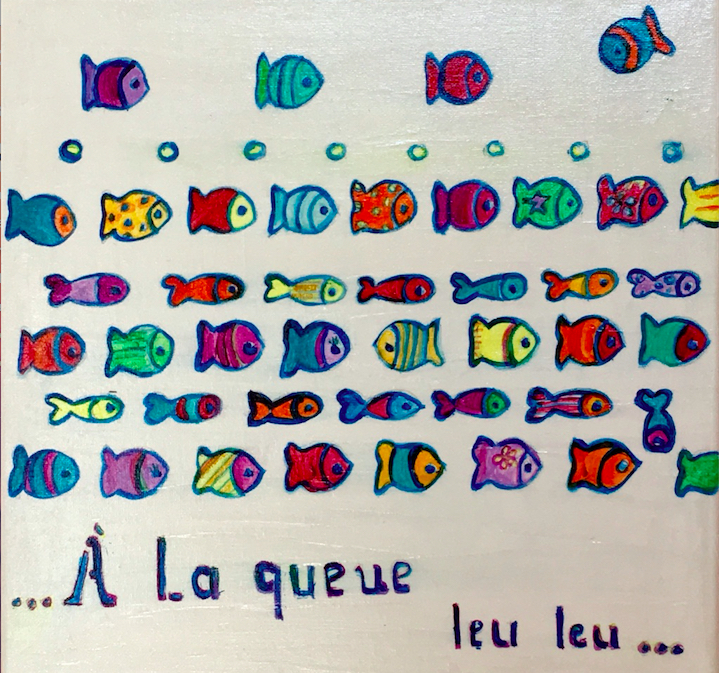 ...À La queue
leu leu...